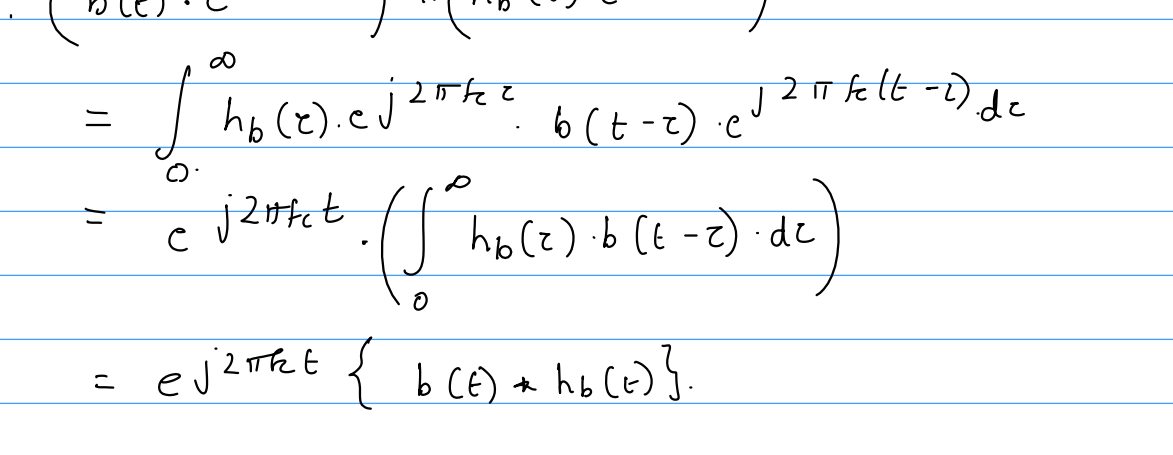 (b(t) · e ) * (h_b(t) e )
= ∫_0^∞ h_b(τ) · e^{j2πf_cτ} · b(t-τ) · e^{j2πf_c(t-τ)} · dτ
= e^{j2πf_ct} · (∫_0^∞ h_b(τ) · b(t-τ) · dτ)
= e^{j2πf_ct} { b(t) * h_b(t)}.